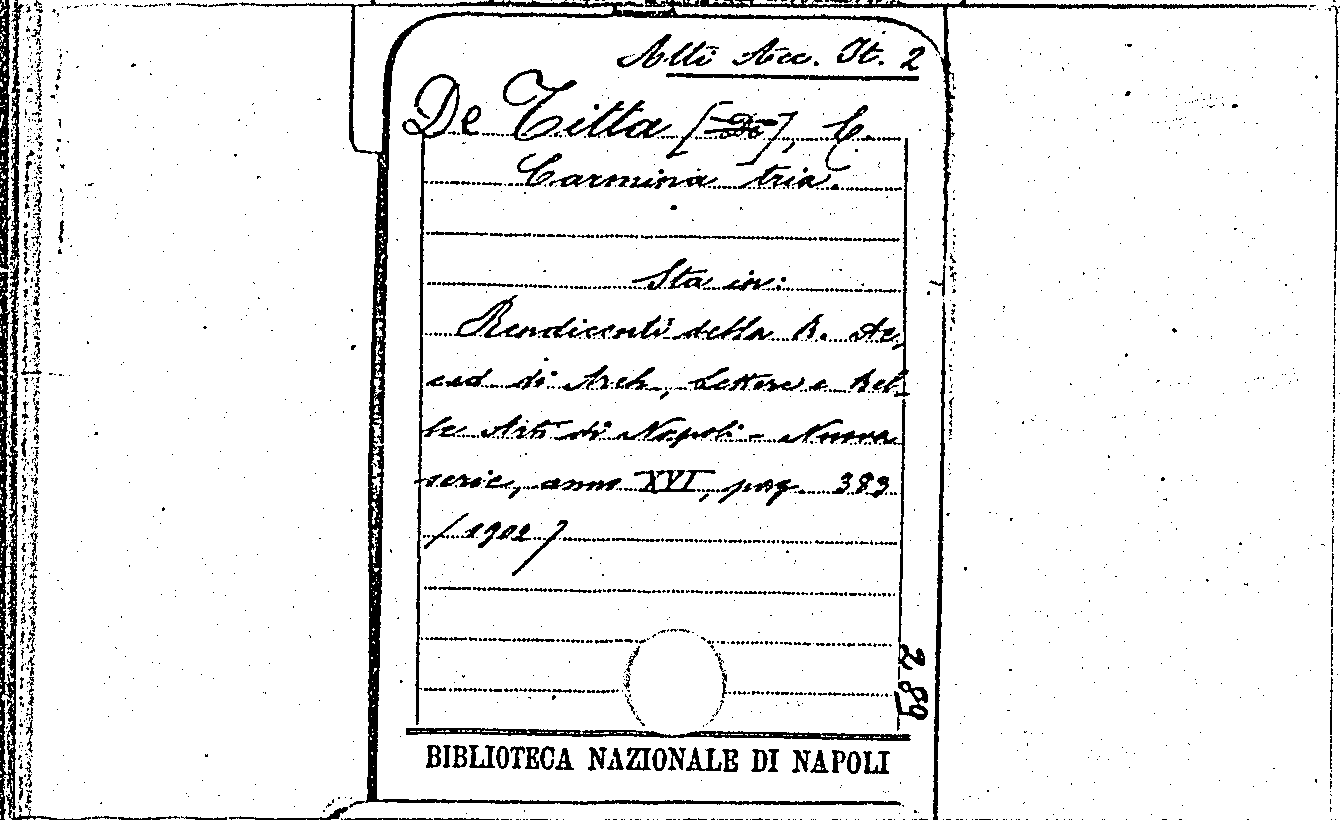 Atti Acc. It. 2
De Titta [De], C.
Carmina tria.
Sta in:
Rendiconti della R. Ac,
cad di Arch., Lettere e Bel,
le Arti di Napoli - Nuova
serie, anno XVI, pag. 383
/1902/
582
BIBLIOTECA NAZIONALE DI NAPOLI